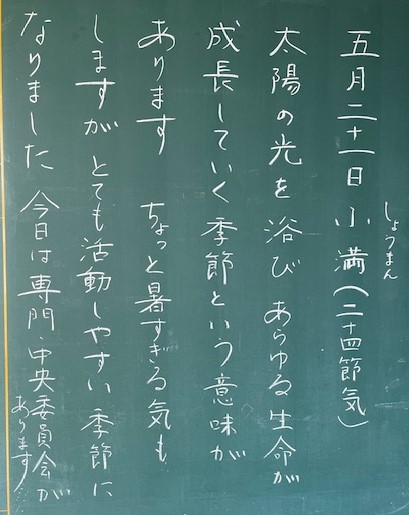 五月二十一日 小満(二十四節気)
しょうまん
太陽の光を浴び あらゆる生命が
成長していく季節という意味が
あります ちょっと暑すぎる気も
しますが とても活動しやすい季節に
なりました 今日は専門・中央委員会が
あります